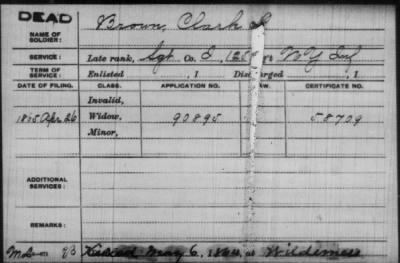 DEAD
NAME OF SOLDIER: Brown, Clark S
SERVICE: Late rank, Sgt Co. E, 125 Rt N Y Inf
TERM OF SERVICE: Enlisted , 1 Discharged , 1
DATE OF FILING. CLASS. APPLICATION NO. LAW. CERTIFICATE NO.
Invalid,
1865 Apr 26 Widow, 90895 58709
Minor,
ADDITIONAL SERVICES:
REMARKS:
Killed May 6, at Wilderness